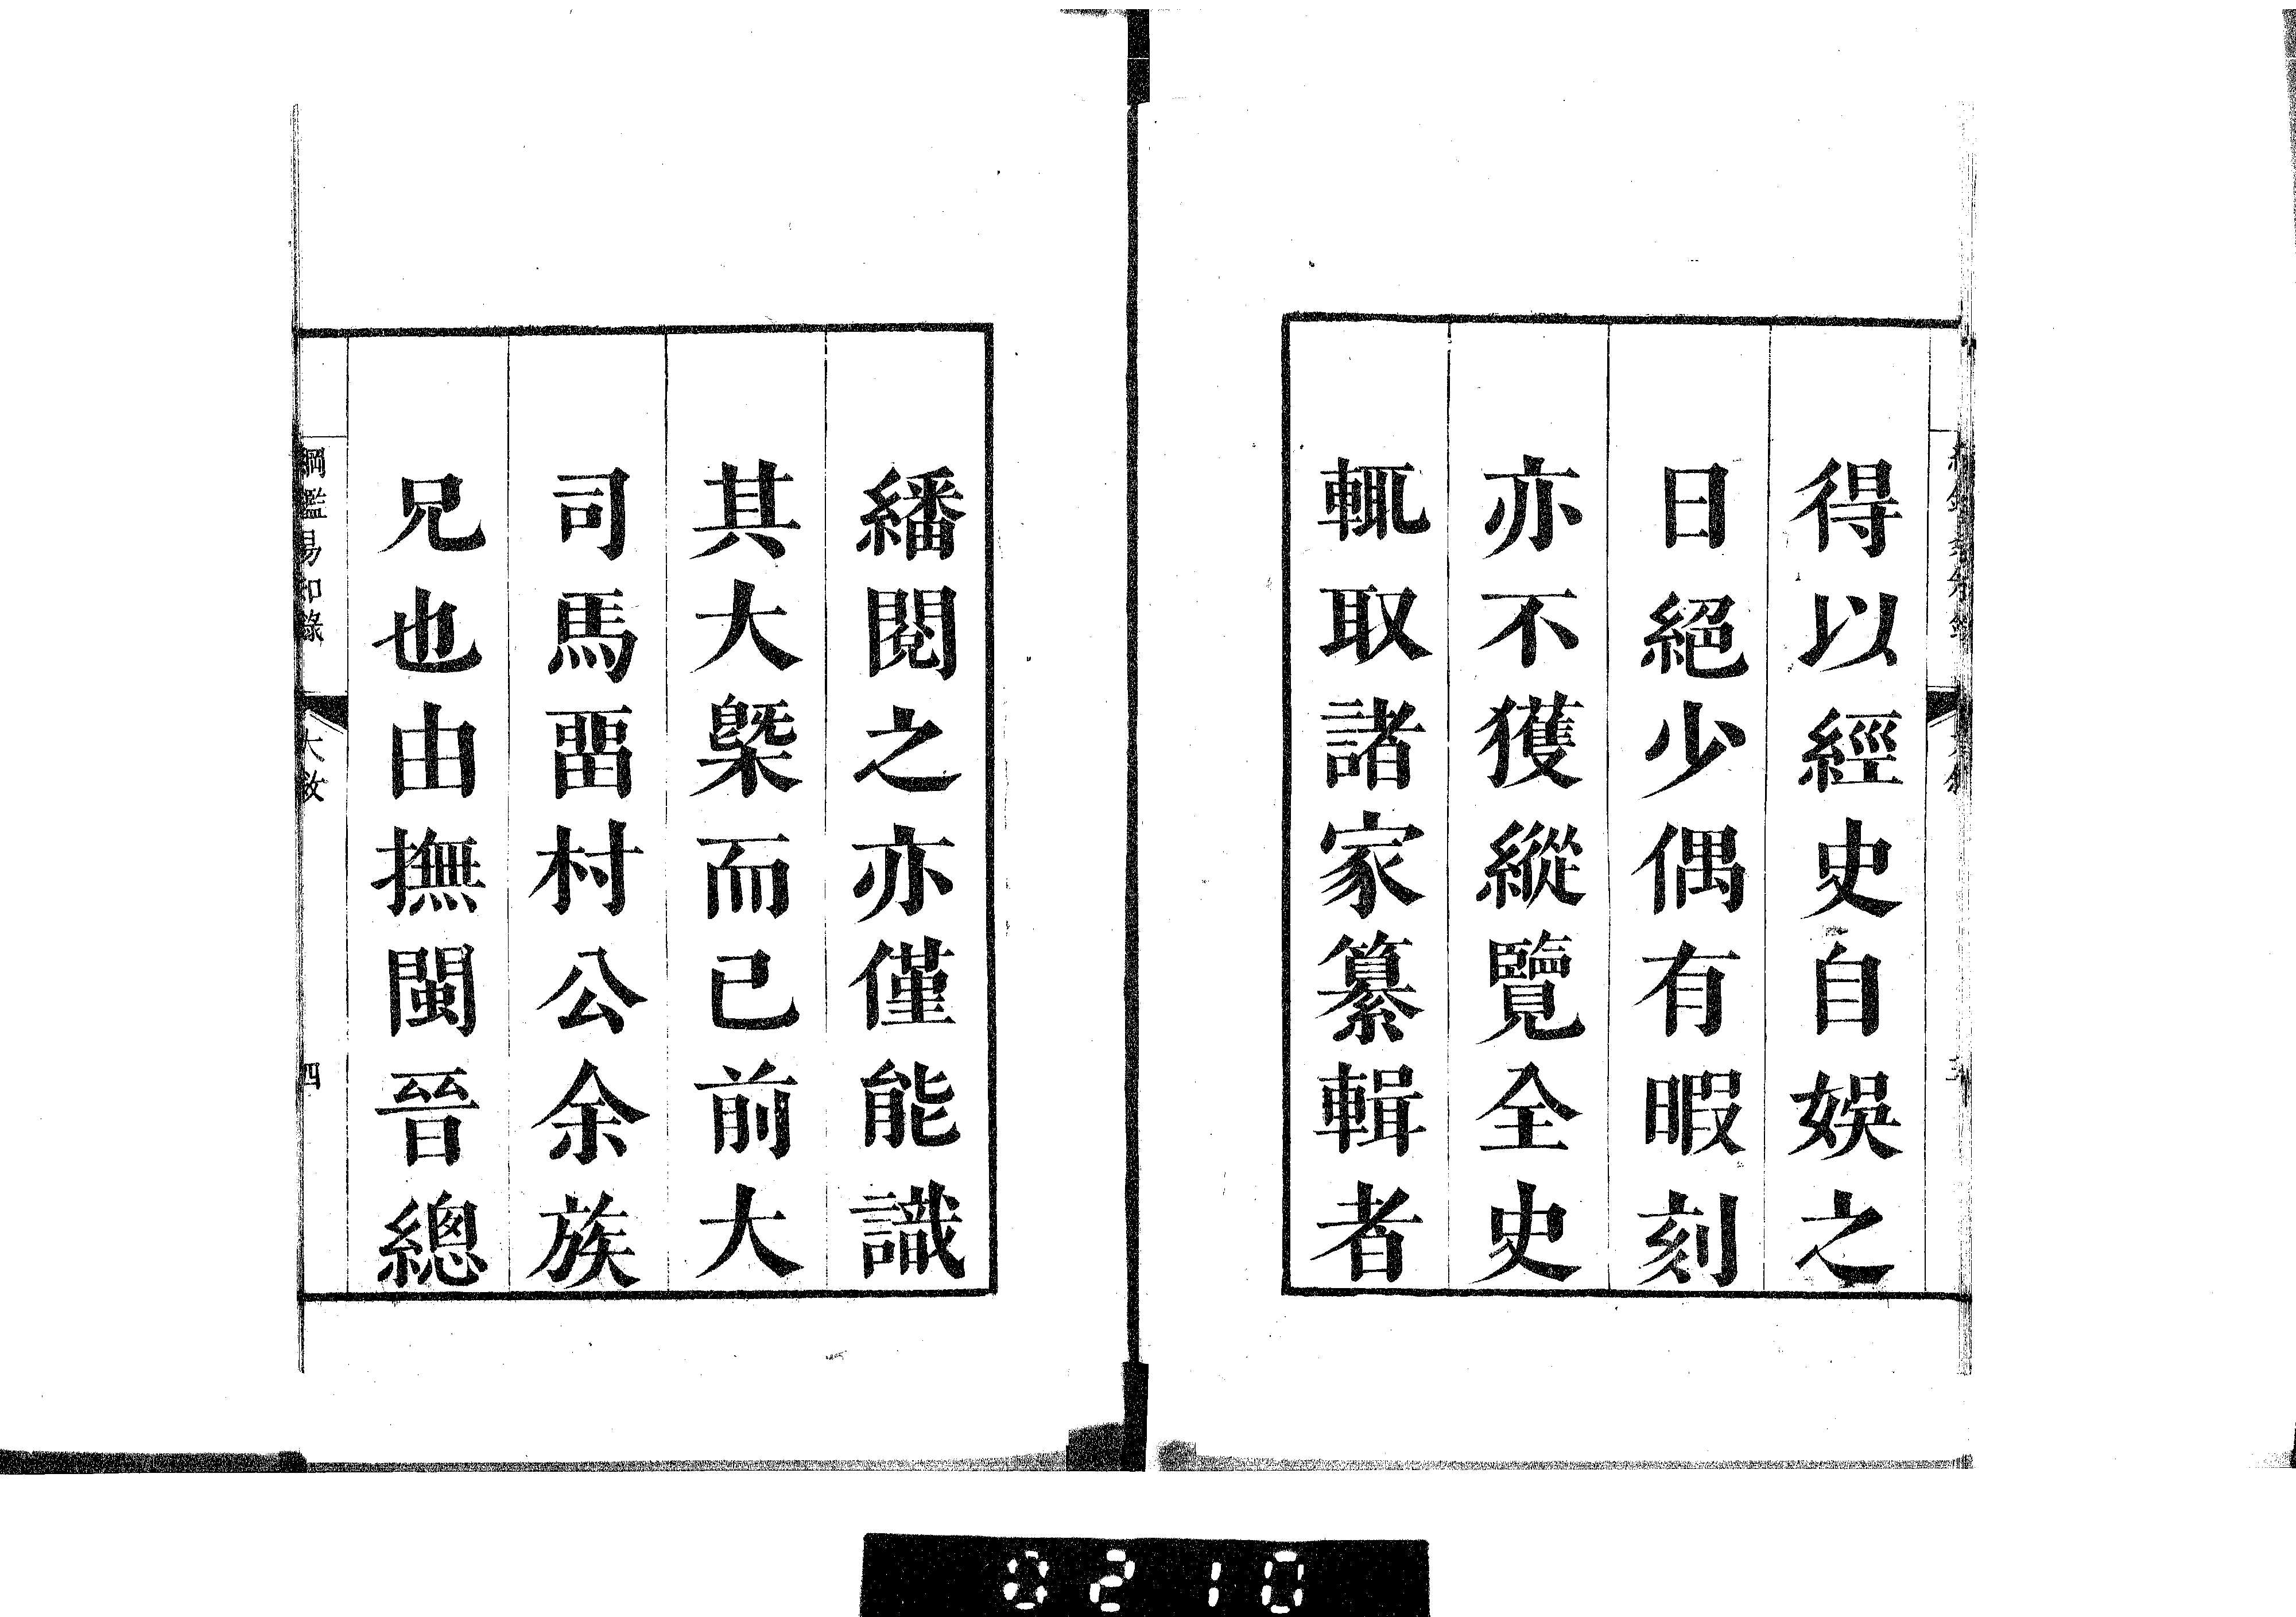 得以經史自娛之
日絕少偶有暇刻
亦不獲縱覽全史
輒取諸家纂輯者
繙閱之亦僅能識
其大槩而已前大
司馬畱村公余族
兄也由撫閩晉總
綱鑑易知錄
四
0210